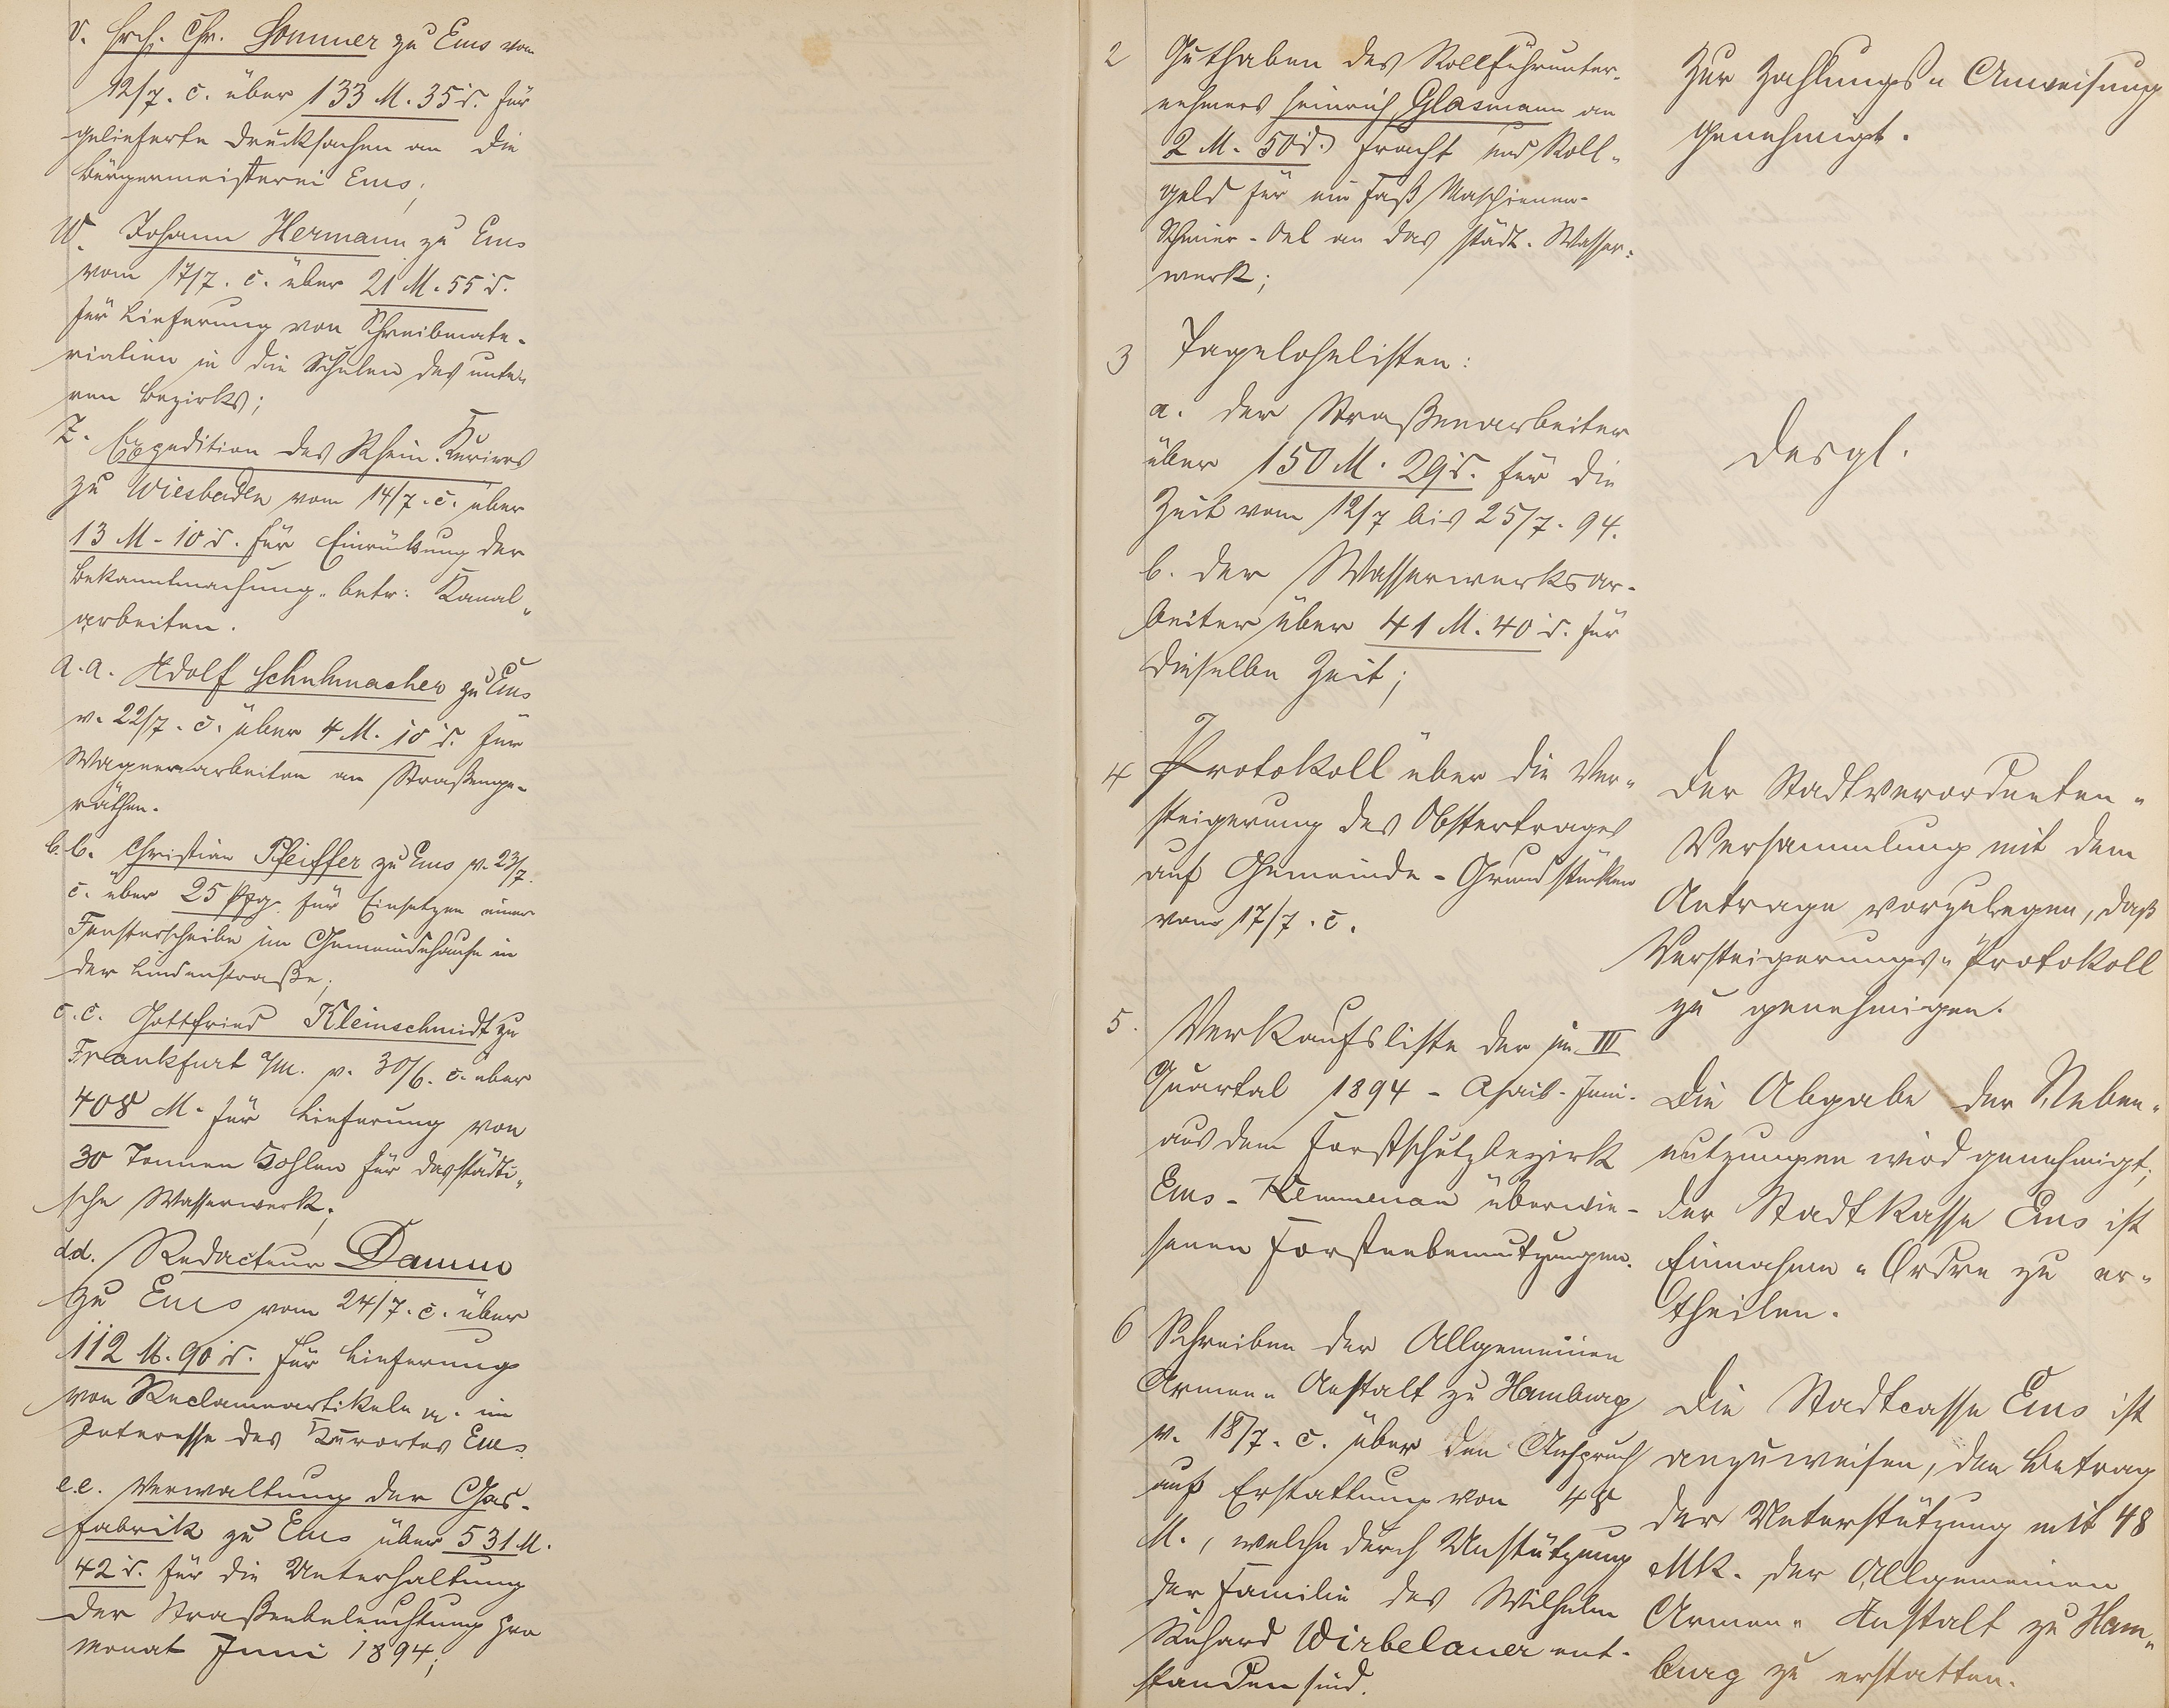 v. Hrch. Chr. Sommer zu Ems vom
12/7. c. über 133 M. 35 d. für
gelieferte Drucksachen an die
Bürgermeisterei Ems;
w. Johann Hermann zu Ems
vom 17/7. c. über 21 M. 55 d.
für Lieferung von Schreibmate-
rialien in die Schulen des unte-
ren Bezirks;
z. Expedition des Rhein. Kuriers
zu Wiesbaden vom 14/7. c. über
13 M - 10 d. für Einrückung der
Bekanntmachung betr: Kanal-
arbeiten.
a.a. Adolf Schuhmacher zu Ems
v. 22/7. c. über 4 M. 10 d. für
Wagnerarbeiten an Straßenge-
räthen.
b.b. Christian Pfeiffer zu Ems v. 23/7.
c. über 25 Pfg. für Einsetzen einer
Fensterscheibe im Gemeindehause in
der Lindenstraße;
c.c. Gottfried Kleinschmidt zu
Frankfurt a/M. v. 30/6. c. über
408 M. für Lieferung von
30 Tonnen Kohlen für das städti-
sche Wasserwerk;
dd. Redacteur Damm
zu Ems vom 24/7. c. über
112 M. 90 d. für Lieferung
von Reclameartikeln im
Interesse des Kurortes Ems.
e.e. Verwaltung der Gas-
fabrik zu Ems über 531 M.
42 d. für die Unterhaltung
der Straßenbeleuchtung pro
Monat Juni 1894;
2 Guthaben des Rollfuhrunter-
nehmers Heinrich Glasmann an
2 M. 50 d. Fracht und Roll-
geld für ein Faß Maschienen-
Schmier-Oel an das städt. Wasser-
werk;
Zur Zahlungs-Anweisung
genehmigt.
3 Tagelohnlisten:
a. der Straßenarbeiter
über 150 M. 29 d. für die
Zeit vom 12/7 bis 25/7. 94.
b. der Wasserwerksar-
beiter über 41 M. 40 d. für
dieselbe Zeit;
desgl.
4 Protokoll über die Ver-
steigerung des Obstertrages
auf Gemeinde-Grundstücken
vom 17/7. c.
Der Stadtverordneten-
Versammlung mit dem
Antrage vorzulegen, daß
Versteigerungs-Protokoll
zu genehmigen.
5. Verkaufsliste der im III
Quartal 1894 - April-Juni-
aus dem Forstschutzbezirk
Ems-Kemmenau überwie-
senen Forstnebennutzungen.
Die Abgabe der Neben-
nutzungen wird genehmigt;
der Stadtkasse Ems ist
Einnahme-Ordre zu er-
theilen.
6 Schreiben der Allgemeinen
Armen-Anstalt zu Hamburg
v. 18/7. c. über den Anspruch
auf Erstattung von 48
M., welche durch Unstützung
der Familie des Wilhelm
Richard Wirbelauer ent-
standen sind.
Die Stadtcasse Ems ist
anzuweisen, den Betrag
der Unterstützung mit 48
Mk. der Allgemeinen
Armen-Anstalt zu Ham-
burg zu erstatten.